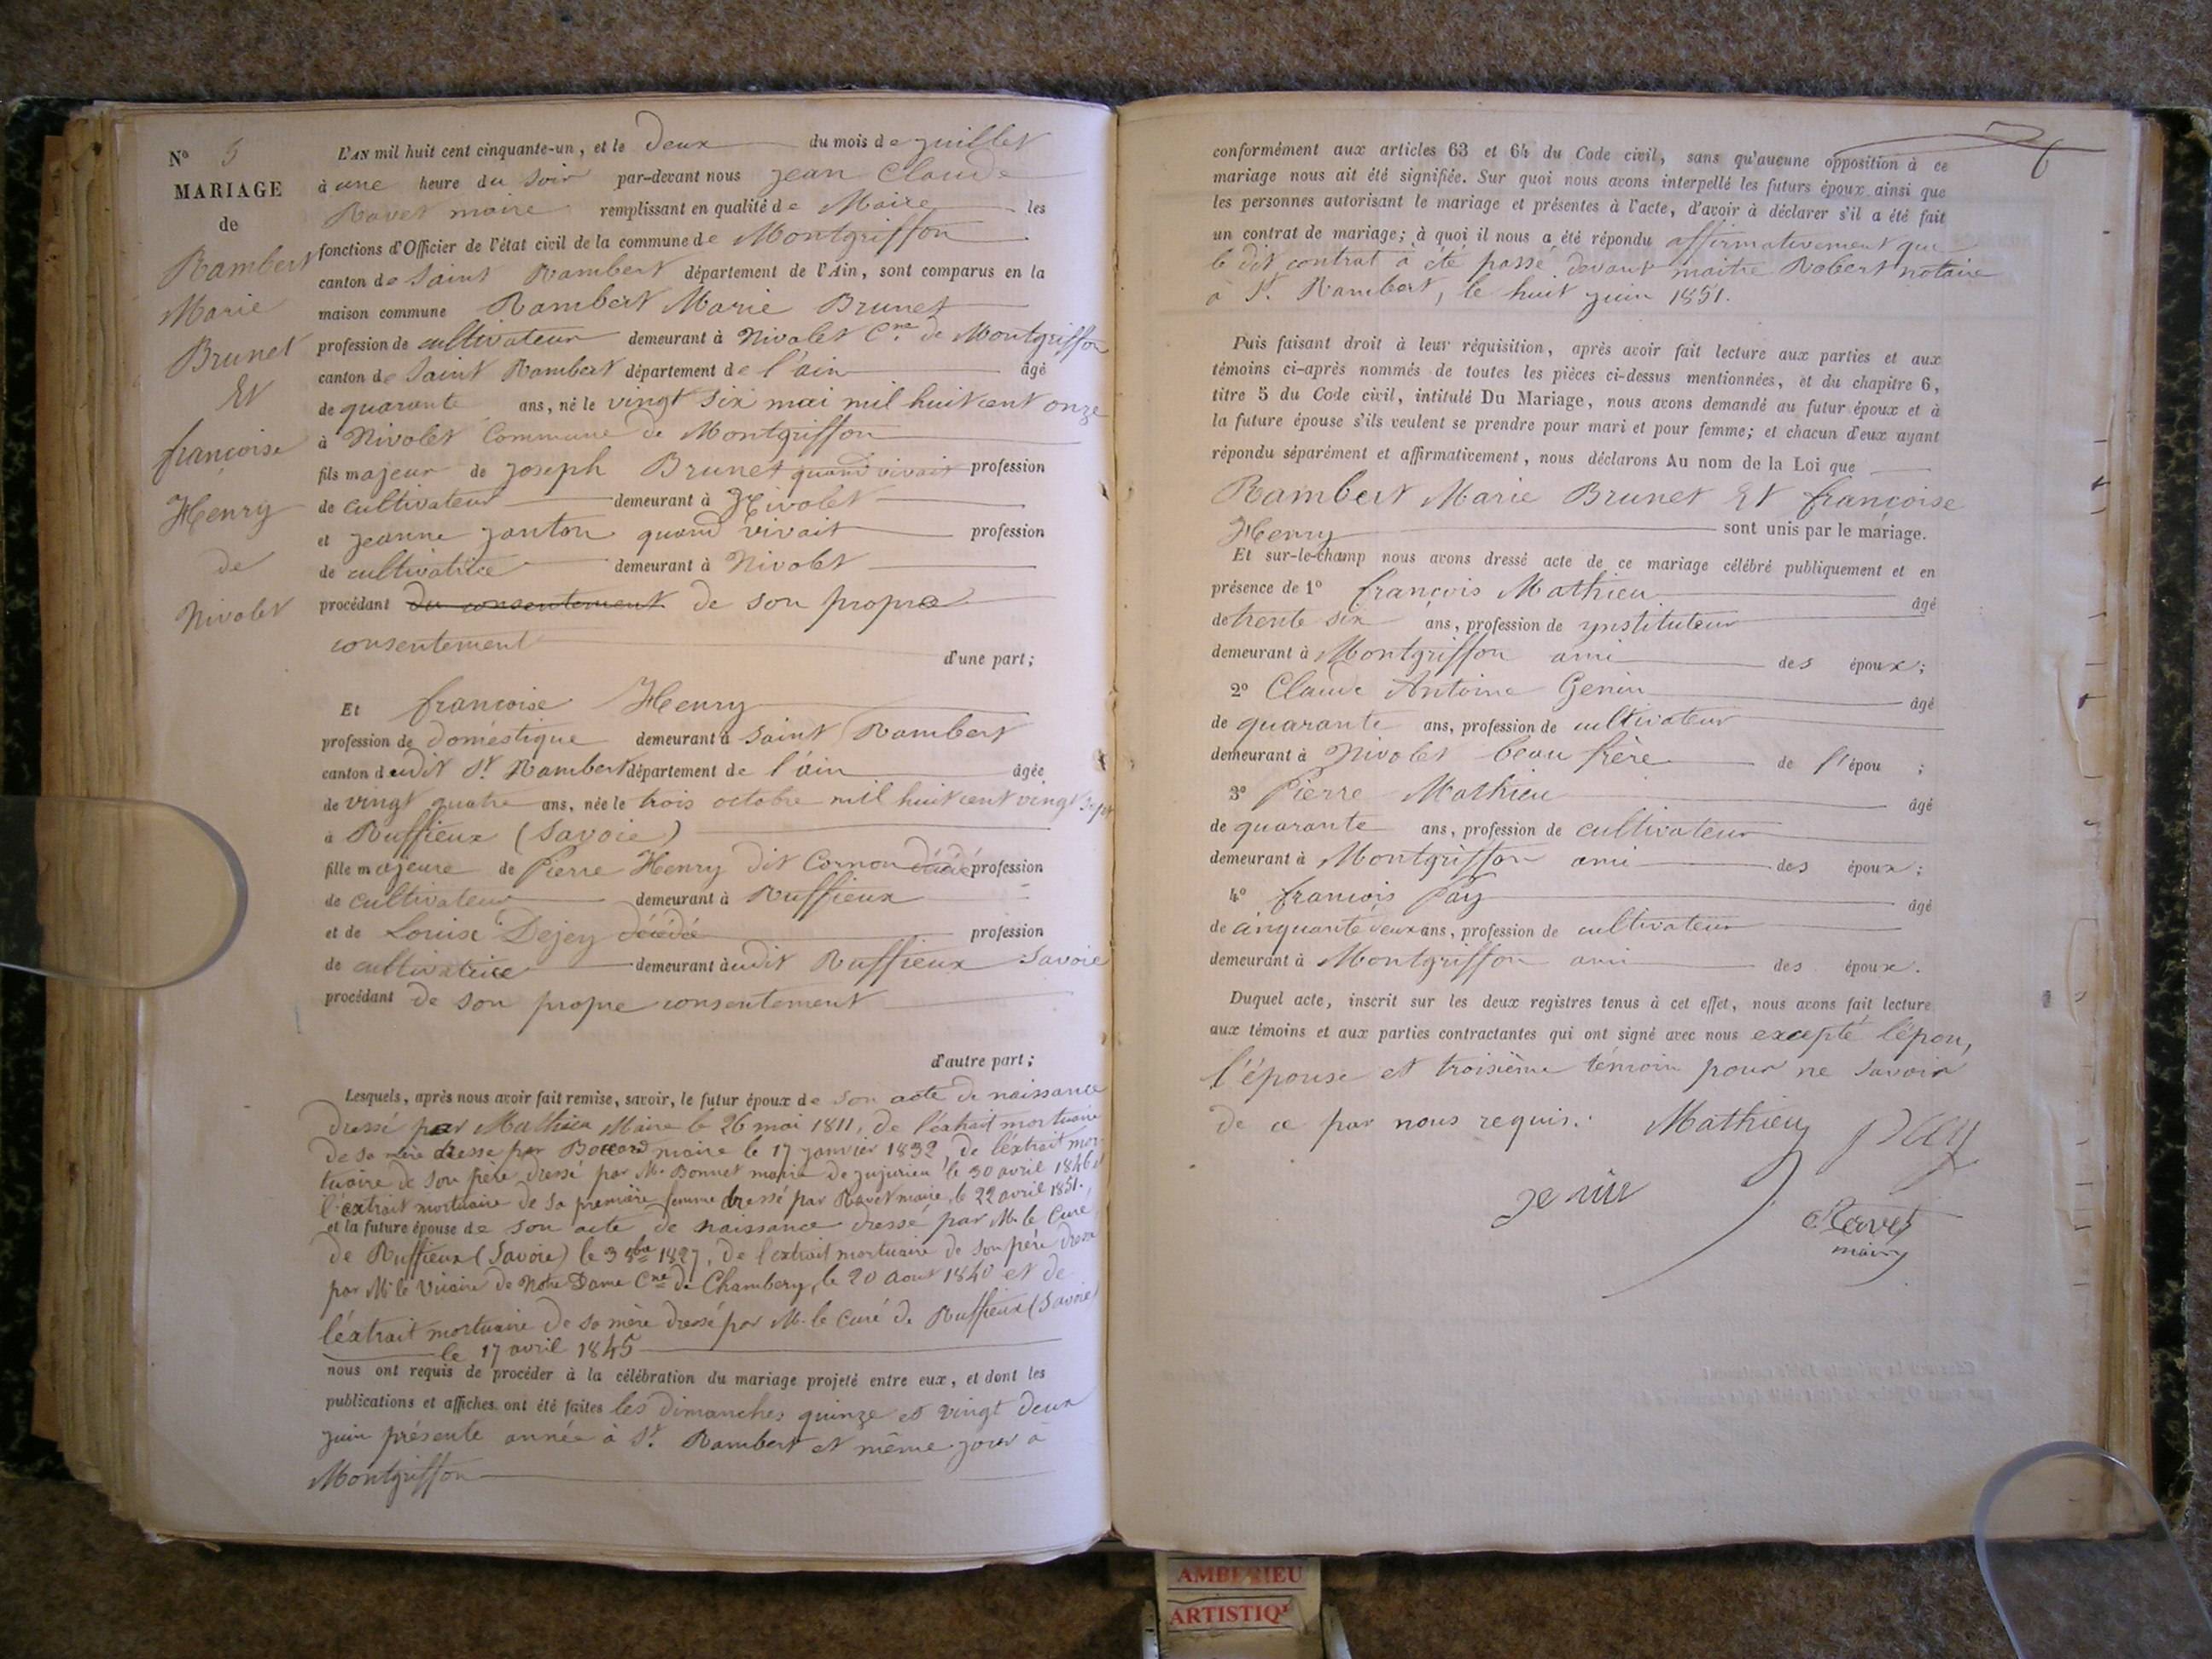 Nº 5
MARIAGE
de
Rambert
Marie
Brunet
Et
françoise
Henry
de
Nivolet
L'AN mil huit cent cinquante-un, et le deux du mois de juillet
à une heure du soir par-devant nous jean Claude
Ravet maire remplissant en qualité de Maire les
fonctions d'Officier de l'état civil de la commune de Montgriffon
canton de Saint Rambert département de l'Ain, sont comparus en la
maison commune Rambert Marie Brunet
profession de cultivateur demeurant à Nivolet Cne de Montgriffon
canton de Saint Rambert département de l'ain âgé
de quarante ans, né le vingt six mai mil huit cent onze
à Nivolet Commune de Montgriffon
fils majeur de joseph Brunet quand vivait profession
de cultivateur demeurant à Nivolet
et jeanne janton quand vivait profession
de cultivatrice demeurant à Nivolet
procédant du consentement de son propre
consentement
d'une part;
Et françoise Henry
profession de doméstique demeurant à Saint Rambert
canton dudit St. Rambert département de l'ain âgée
de vingt quatre ans, née le trois octobre mil huit cent vingt sept
à Ruffieux (Savoie)
fille majeure de Pierre Henry dit Cornon décédé profession
de cultivateur demeurant à Ruffieux
et de Louise Dejey décédée profession
de cultivatrice demeurant àudit Ruffieux Savoie
procédant de son propre consentement
d'autre part;
Lesquels, après nous avoir fait remise, savoir, le futur époux de son acte de naissance
dressé par Mathieu Maire le 26 mai 1811, de l'éxtrait mortuaire
de sa mère dressé par Boccard maire le 17 janvier 1832, de l'éxtrait mor-
tuaire de son père dressé par Mr. Bonnet maire de jujurieu le 30 avril 1846 et
l'éxtrait mortuaire de sa première femme dressé par Ravet maire, le 22 avril 1851.
et la future épouse de son acte de naissance dressé par M. le Curé,
de Ruffieux (Savoie) le 3 8bre 1827, de l'extrait mortuaire de son père dressé
par Mr le Vicaire de Notre Dame Cne de Chambery, le 20 Aout 1840 et de
l'éxtrait mortuaire de sa mère dressé par M. le Curé de Ruffieux (Savoie)
le 17 avril 1845
nous ont requis de procéder à la célébration du mariage projeté entre eux, et dont les
publications et affiches ont été faites les dimanches quinze et vingt deux
juin présente année à St. Rambert et même jour à
Montgriffon
6
conformément aux articles 63 et 64 du Code civil, sans qu'aucune opposition à ce
mariage nous ait été signifiée. Sur quoi nous avons interpellé les futurs époux ainsi que
les personnes autorisant le mariage et présentes à l'acte, d'avoir à déclarer s'il a été fait
un contrat de mariage; à quoi il nous a été répondu affirmativement que
le dit contrat a été passé devant maitre Robert notaire
à St. Rambert, le huit juin 1851.
Puis faisant droit à leur réquisition, après avoir fait lecture aux parties et aux
témoins ci-après nommés de toutes les pièces ci-dessus mentionnées, et du chapitre 6,
titre 5 du Code civil, intitulé Du Mariage, nous avons demandé au futur époux et à
la future épouse s'ils veulent se prendre pour mari et pour femme; et chacun d'eux ayant
répondu séparément et affirmativement, nous déclarons Au nom de la Loi que
Rambert Marie Brunet Et françoise
Henry sont unis par le mariage.
Et sur-le-champ nous avons dressé acte de ce mariage célébré publiquement et en
présence de 1º françois Mathieu âgé
de trente six ans, profession de ynstituteur
demeurant à Montgriffon ami des époux;
2º Claude Antoine Genin âgé
de quarante ans, profession de cultivateur
demeurant à Nivolet beau frère de l'épou ;
3º Pierre Mathieu âgé
de quarante ans, profession de cultivateur
demeurant à Montgriffon ami des époux;
4º françois Pay âgé
de cinquante deux ans, profession de cultivateur
demeurant à Montgriffon ami des époux.
Duquel acte, inscrit sur les deux registres tenus à cet effet, nous avons fait lecture
aux témoins et aux parties contractantes qui ont signé avec nous excepté l'épou,
l'épouse et troisième témoin pour ne savoir
de ce par nous requis. Mathieu
Ravet
maire
AMBERIEU
ARTISTIQ